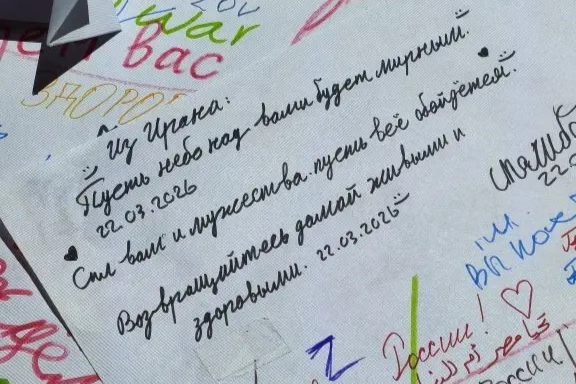 war
вас
ЗДОРО
Из Ирана:
Пусть небо над вами будет мирным.
22.03.2026
Сил вам и мужества. пусть всё обойдётся.
Возвращайтесь домой живыми и
здоровыми. 22.03.2026
22.0
России!